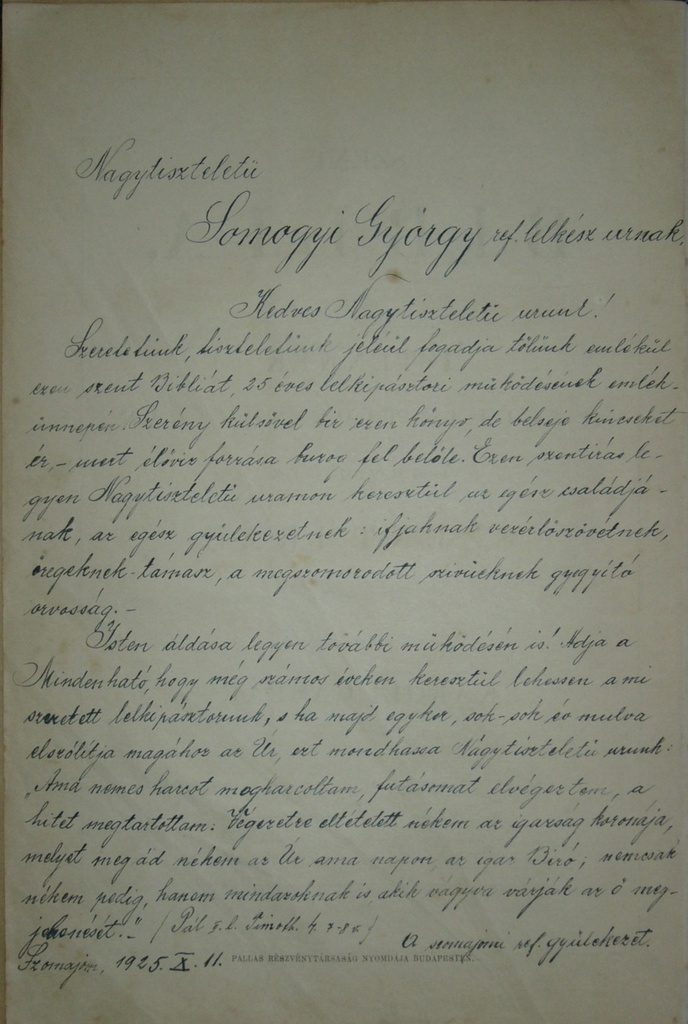 Nagytiszteletü
Somogyi György ref. lelkész urnak.
Kedves Nagytiszteletü urunk!
Szeretetünk, tiszteletünk jeléül fogadja tőlünk emlékül
ezen szent Bibliát, 25 éves lelkipásztori müködésének emlék-
ünnepén. Szerény külsővel bir ezen könyv, de belseje kincseket
ér, - mert élőviz forrása buzog fel belőle. Ezen szentirás le-
gyen Nagytiszteletü uramon keresztül az egész családjá-
nak, az egész gyülekezetnek: ifjaknak vezérlőszövétnek,
öregeknek-támasz, a megszomorodott szivüeknek gyógyító
orvosság. -
Isten áldása legyen további müködésén is! Adja a
Mindenható, hogy még számos éveken keresztül lehessen a mi
szeretett lelkipásztorunk, s ha majd egykor, sok-sok év mulva
elszólitja magához az Úr, ezt mondhassa Nagytiszteletü urunk:
„Ama nemes harcot megharcoltam, futásomat elvégeztem, a
hitet megtartottam. Végezetre eltétetett nékem az igazság koronája,
melyet megád nékem az Úr ama napon, az igaz Biró; nemcsak
nékem pedig, hanem mindazoknak is, akik vágyva várják az ő meg-
jelenését." - (Pál II. l. Timoth. 4. 7-8 v.)
A szomajomi ref. gyülekezet.
Szomajom, 1925. X. 11. PALLAS RÉSZVÉNYTÁRSASÁG NYOMDÁJA BUDAPESTEN.